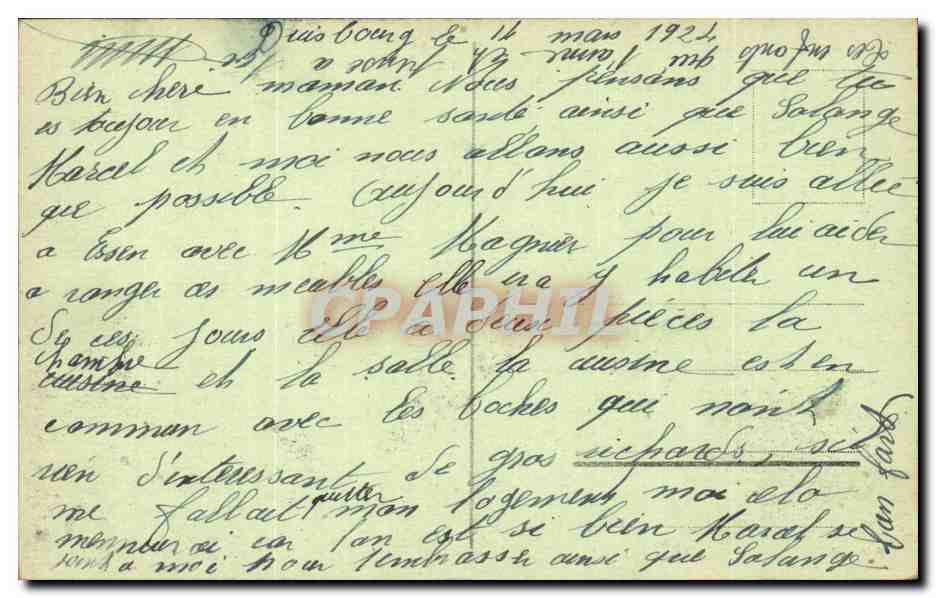 Duisbourg le 14 mars 1924
Bien chère maman Nous pensons que tu
es toujour en bonne santé ainsi que Solange
Marcel et moi nous allons aussi bien
que possible. Aujourd'hui je suis allée
a Essen avec Mme Magnier pour lui aider
a ranger ces meubles elle ira y habiter un
de ces jours elle a deux pièces la
chambre
cuisine et la salle la cuisine est en
commun avec les boches qui n'ont
rien d'intéressant de gros richards, s'il
me fallait quitter mon logement moi cela
m'ennuirai car l'on est si bien Marcel se
joint a moi pour t'embrasser ainsi que Solange.
CPAPHIL